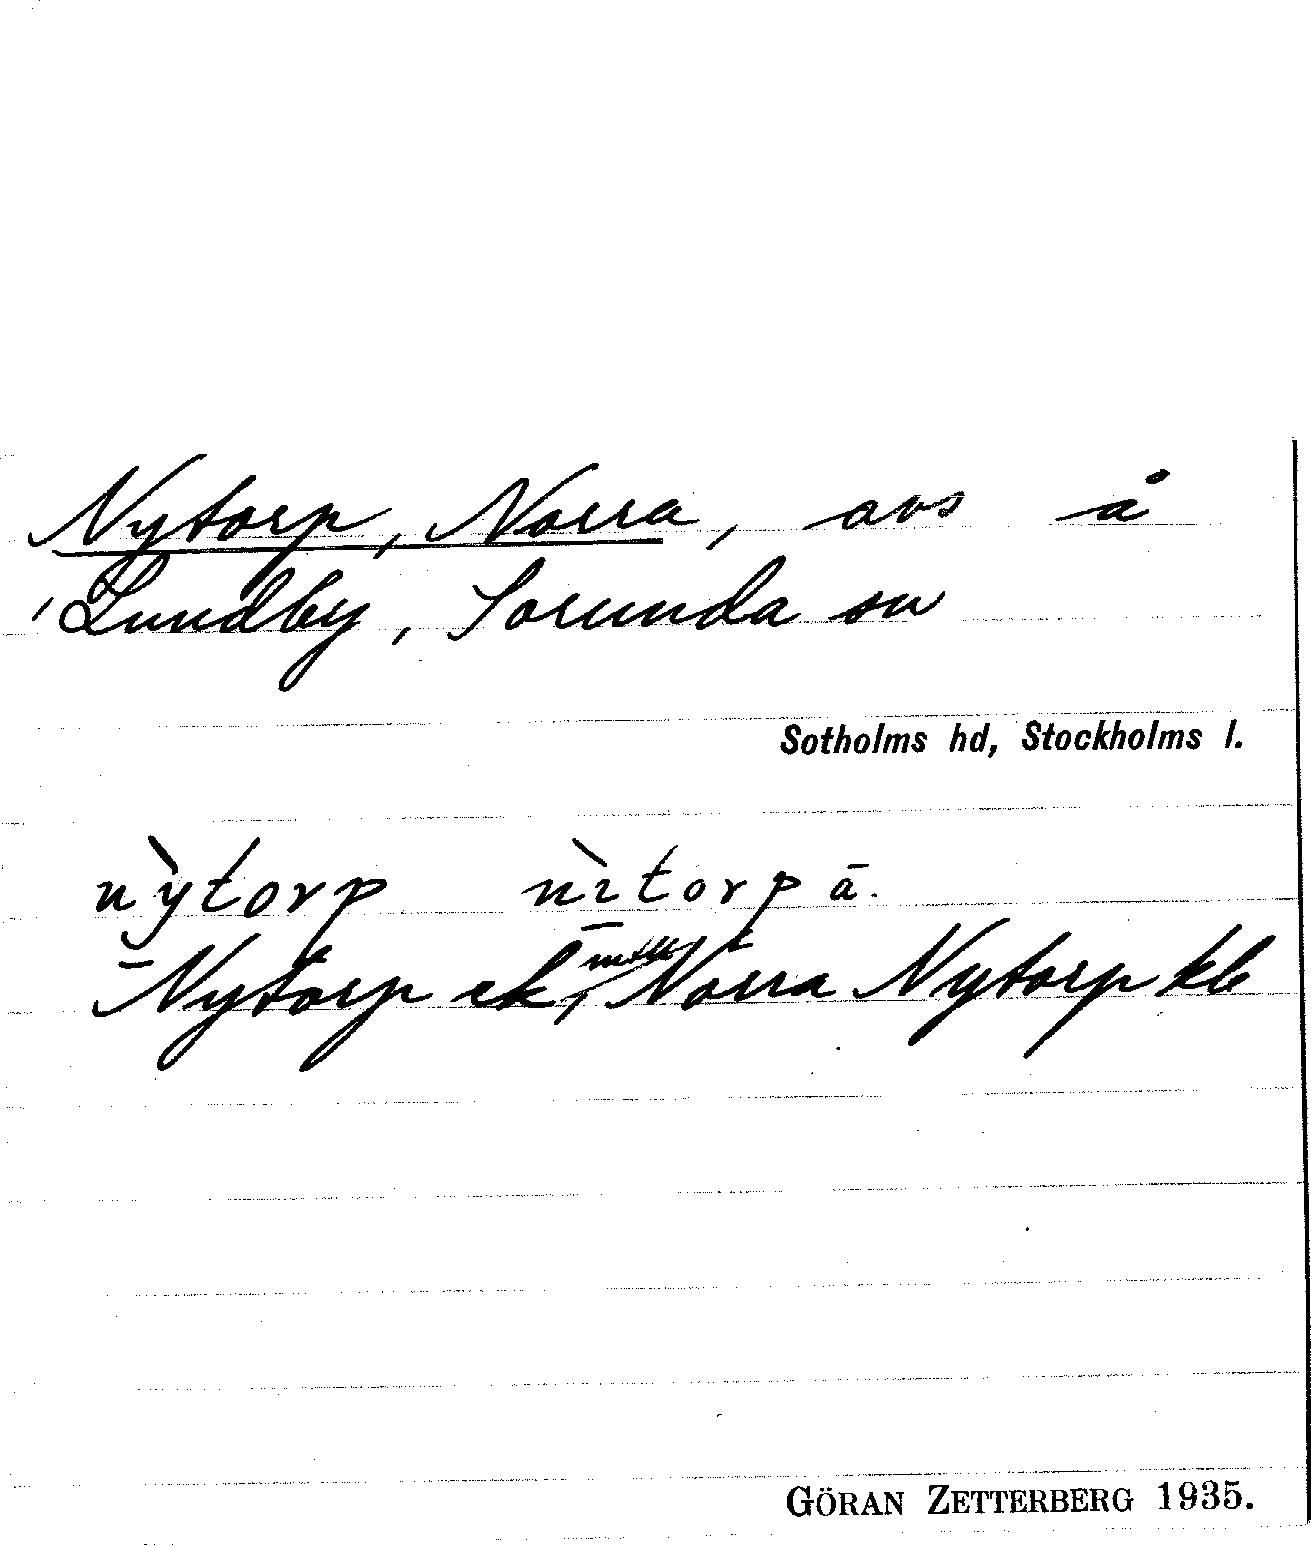 Nytorp, Norra, avs å
Lundby, Sorunda sn
Sotholms hd, Stockholms l.
nỳtorp nìtorp ā.
Nytorp ek, Norra Nytorp kb
GÖRAN ZETTERBERG 1935.